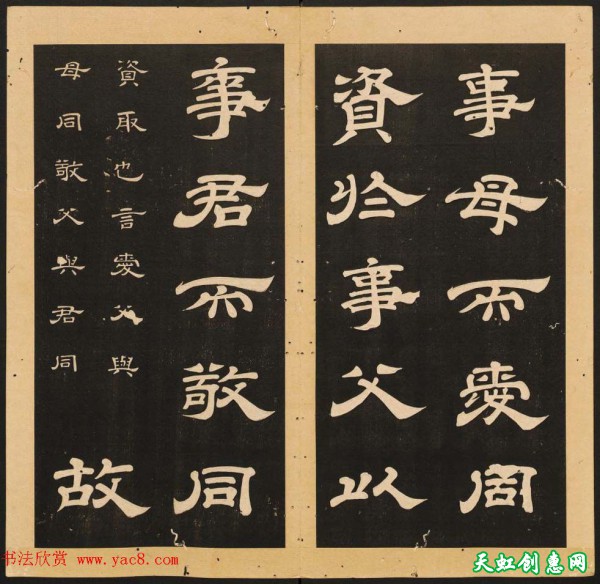 事母而愛同
資於事父以
事君而敬同
資取也言愛父與
母同敬父與君同
故
书法欣赏 www.yac8.com
天虹创惠网